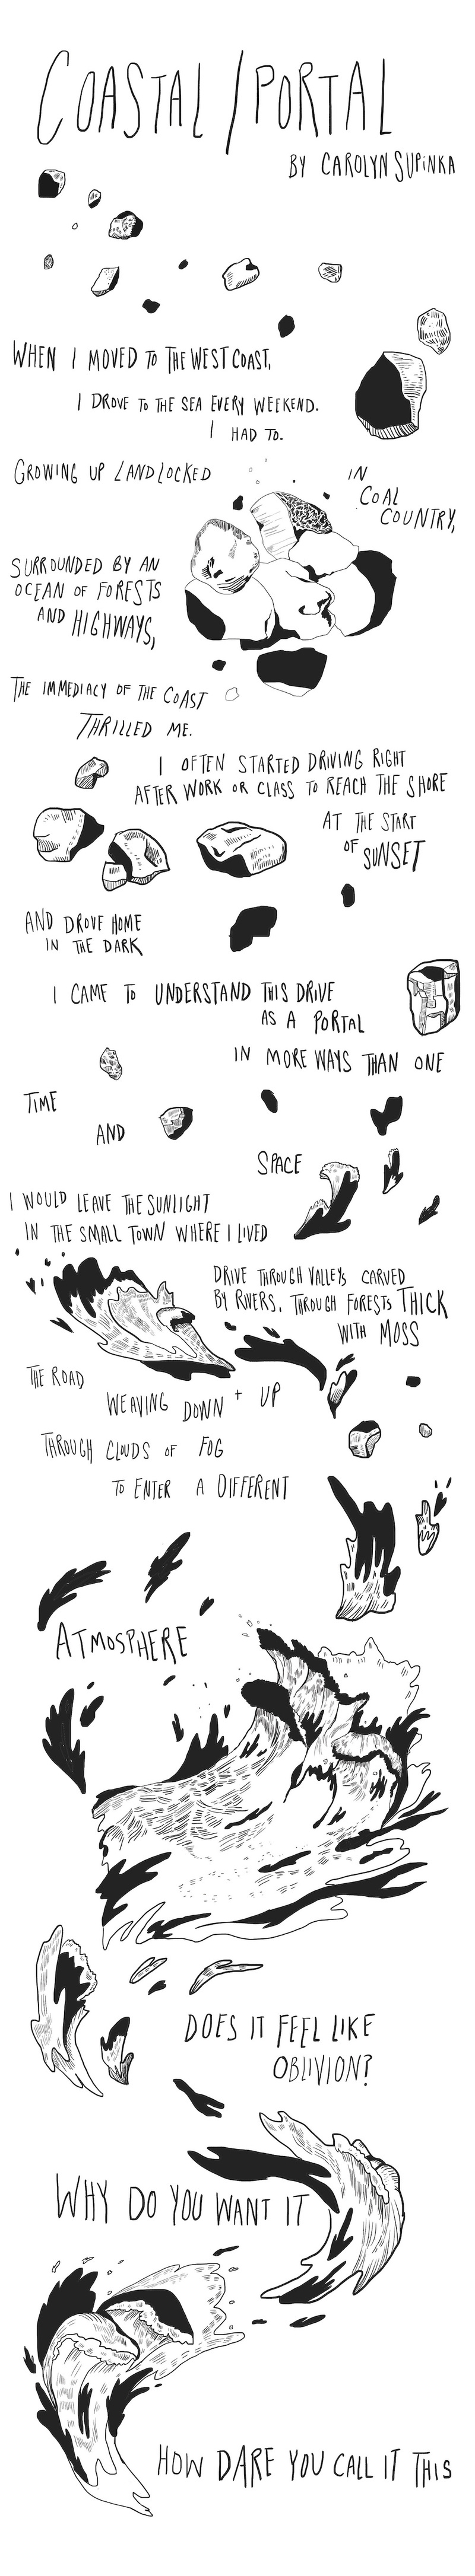 COASTAL/PORTAL
BY CAROLYN SUPINKA
WHEN I MOVED TO THE WEST COAST,
I DROVE TO THE SEA EVERY WEEKEND.
I HAD TO.
GROWING UP LANDLOCKED
IN
COAL
COUNTRY,
SURROUNDED BY AN
OCEAN OF FORESTS
AND HIGHWAYS,
THE IMMEDIACY OF THE COAST
THRILLED ME.
I OFTEN STARTED DRIVING RIGHT
AFTER WORK OR CLASS TO REACH THE SHORE
AT THE START
OF SUNSET
AND DROVE HOME
IN THE DARK
I CAME TO UNDERSTAND THIS DRIVE
AS A PORTAL
IN MORE WAYS THAN ONE
TIME
AND
SPACE
I WOULD LEAVE THE SUNLIGHT
IN THE SMALL TOWN WHERE I LIVED
DRIVE THROUGH VALLEYS CARVED
BY RIVERS, THROUGH FORESTS THICK
WITH MOSS
THE ROAD
WEAVING DOWN + UP
THROUGH CLOUDS OF FOG
TO ENTER A DIFFERENT
ATMOSPHERE
DOES IT FEEL LIKE
OBLIVION?
WHY DO YOU WANT IT
HOW DARE YOU CALL IT THIS